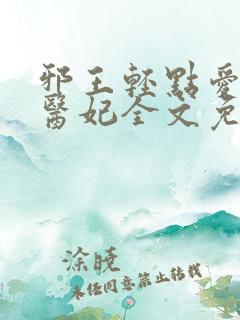 邪王輕點愛
醫妃全文免
涂曉
未經同意禁止轉載